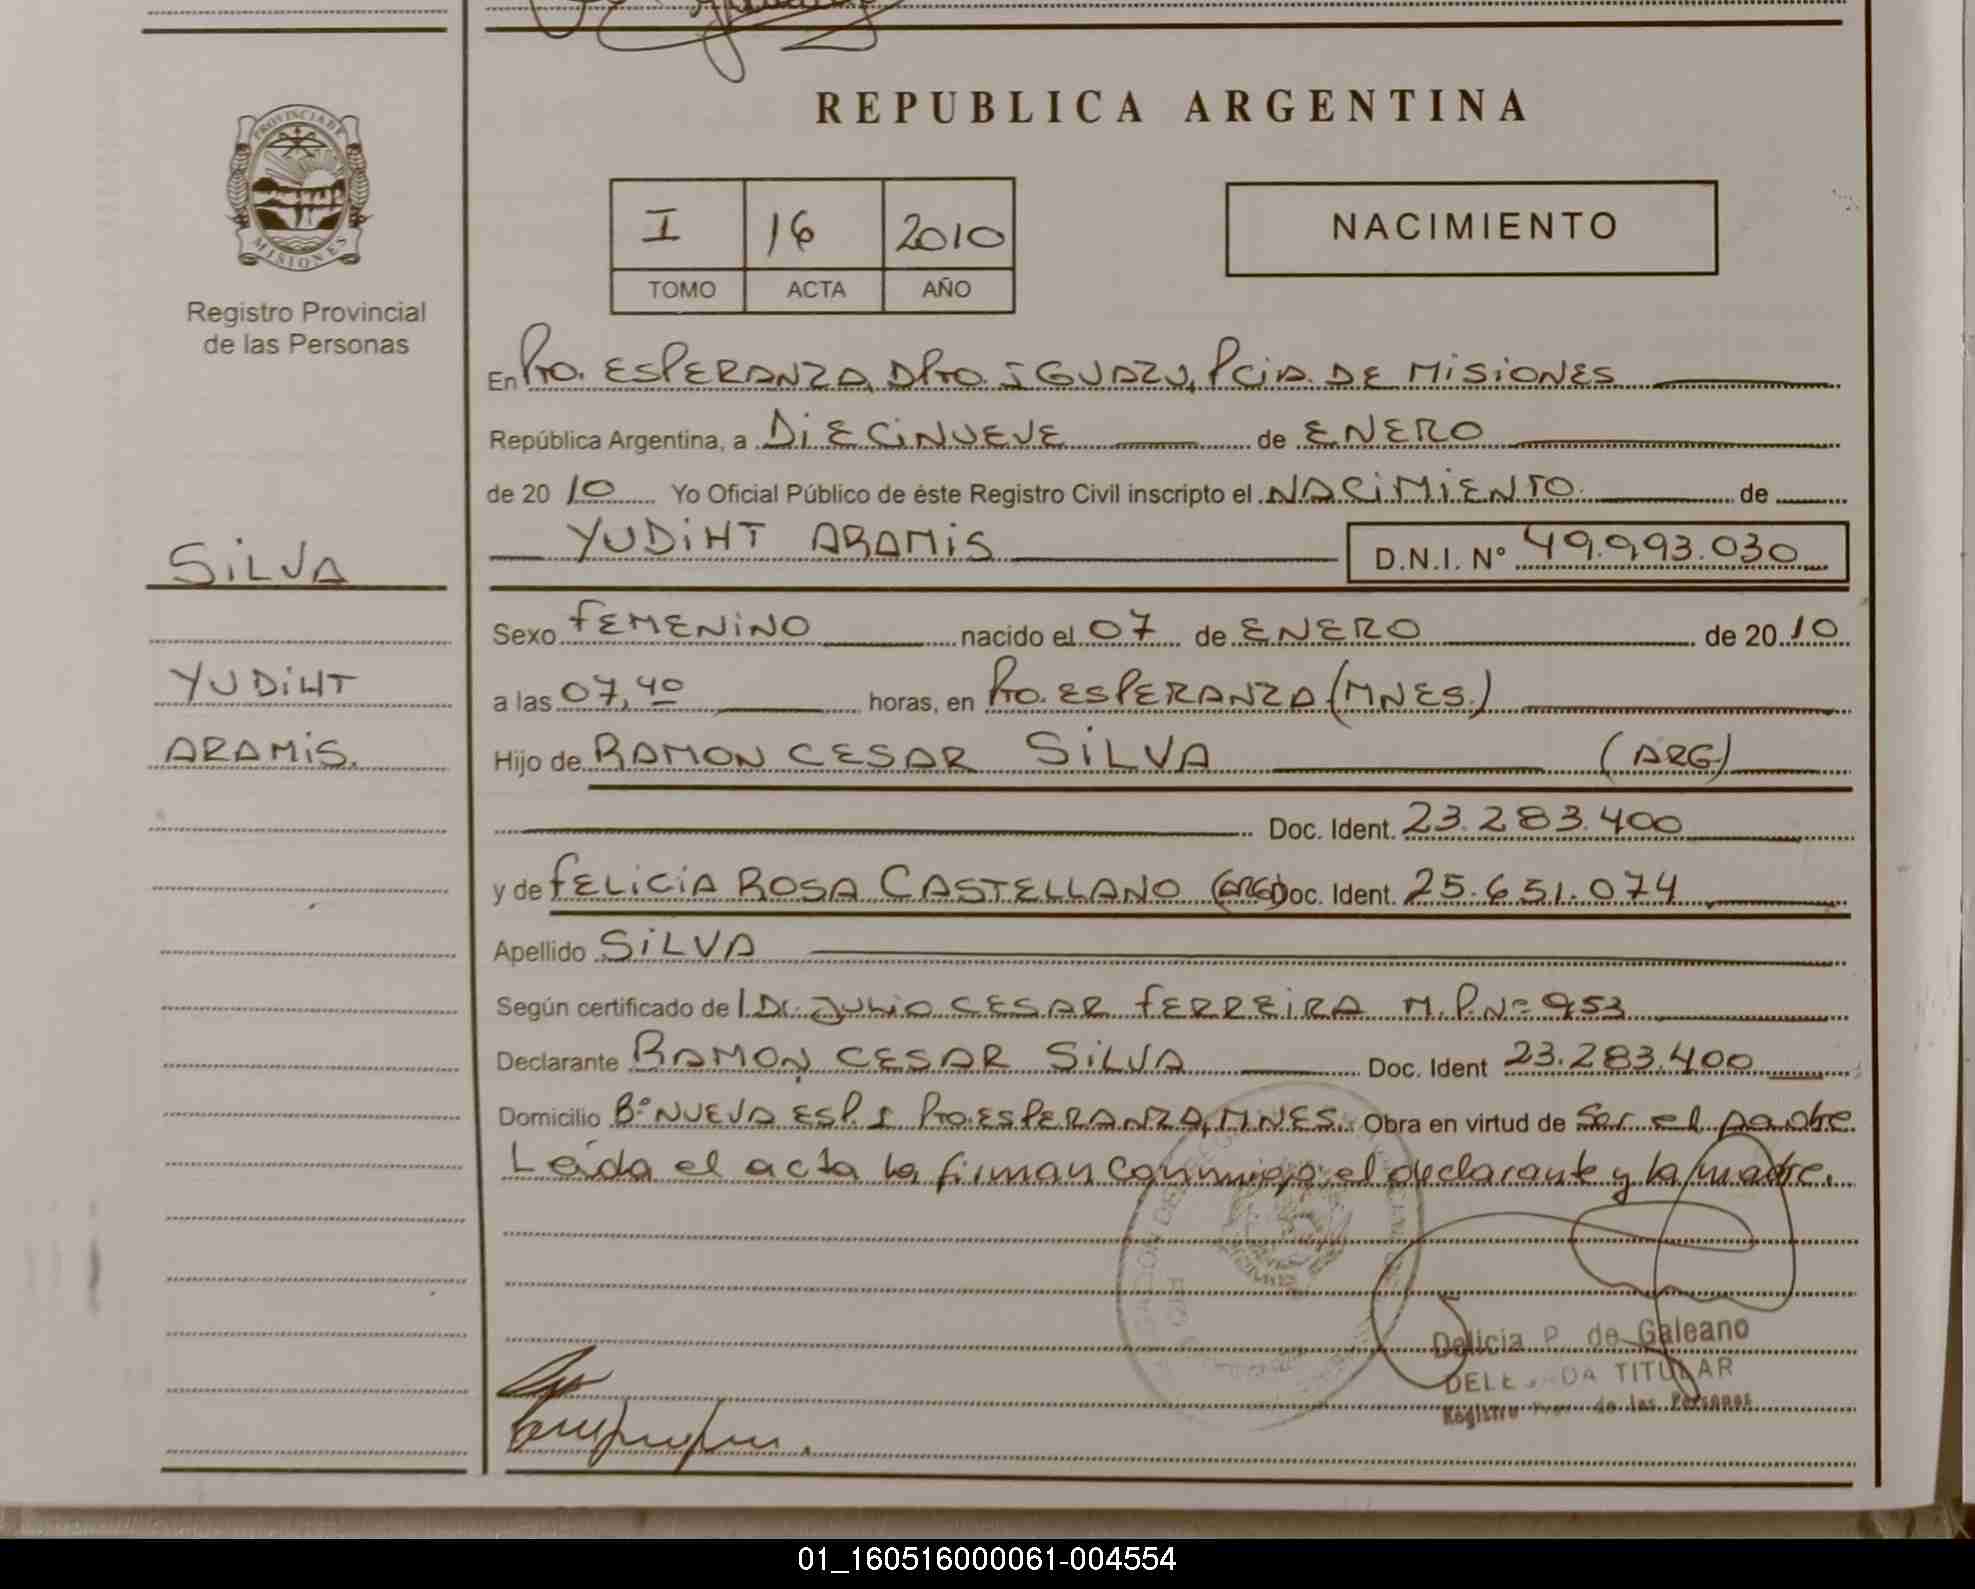 REPUBLICA ARGENTINA
PROVINCIA DE
MISIONES
Registro Provincial
de las Personas
I 16 2010
TOMO ACTA AÑO
NACIMIENTO
En Pto. ESPERANZA, DPto. IGUAZU, PCIA. DE MISIONES
República Argentina, a DIECINUEVE de ENERO
de 20 10 Yo Oficial Público de éste Registro Civil inscripto el NACIMIENTO de
YUDIHT ARAMIS D.N.I. N° 49.993.030
SILVA
YUDIHT
ARAMIS.
Sexo FEMENINO nacido el 07 de ENERO de 20 10
a las 07,40 horas, en Pto. ESPERANZA (MNES.)
Hijo de RAMON CESAR SILVA (ARG)
Doc. Ident. 23.283.400
y de FELICIA ROSA CASTELLANO (ARG) Doc. Ident. 25.651.074
Apellido SILVA
Según certificado de l Dr. JULIO CESAR FERREIRA M.P.N= 953
Declarante RAMON CESAR SILVA Doc. Ident 23.283.400
Domicilio B° NUEVA ESP. I Pto. ESPERANZA, MNES. Obra en virtud de Ser el padre
Leida el acta la firman conmigo el declarante y la madre.
Delicia P. de Galeano
TITULAR
Registro de las Personas
01_160516000061-004554